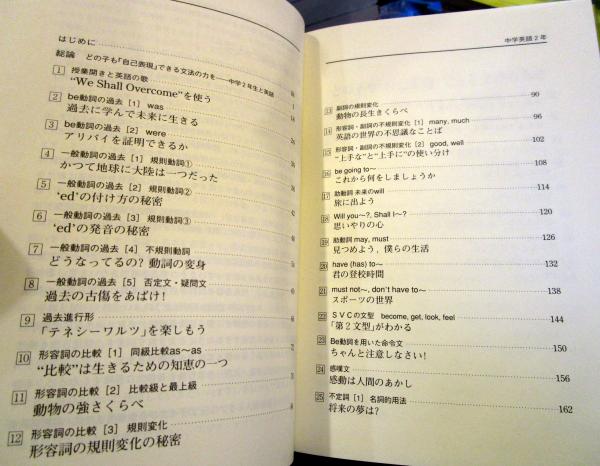 はじめに
総論 どの子も「自己表現」できる文法の力を——中学2年生と英語
1 授業開きと英語の歌
“We Shall Overcome”を使う
2 be動詞の過去 [1] was
過去に学んで未来に生きる
3 be動詞の過去 [2] were
アリバイを証明できるか
4 一般動詞の過去 [1] 規則動詞①
かつて地球に大陸は一つだった
5 一般動詞の過去 [2] 規則動詞②
‘ed’の付け方の秘密
6 一般動詞の過去 [3] 規則動詞③
‘ed’の発音の秘密
7 一般動詞の過去 [4] 不規則動詞
どうなってるの? 動詞の変身
8 一般動詞の過去 [5] 否定文・疑問文
過去の古傷をあばけ!
9 過去進行形
「テネシーワルツ」を楽しもう
10 形容詞の比較 [1] 同級比較as〜as
“比較”は生きるための知恵の一つ
11 形容詞の比較 [2] 比較級と最上級
動物の強さくらべ
12 形容詞の比較 [3] 規則変化
形容詞の規則変化の秘密
中学英語2年
13 副詞の規則変化
動物の長生きくらべ 90
14 形容詞・副詞の不規則変化 [1] many, much
英語の世界の不思議なことば 96
15 形容詞・副詞の不規則変化 [2] good, well
“上手な”と“上手に”の使い分け 102
16 be going to〜
これから何をしましょうか 108
17 助動詞 未来のwill
旅に出よう 114
18 Will you〜?, Shall I〜?
思いやりの心 120
19 助動詞 may, must
見つめよう、僕らの生活 126
20 have (has) to〜
君の登校時間 132
21 must not〜, don't have to〜
スポーツの世界 138
22 SVCの文型 become, get, look, feel
「第2文型」がわかる 144
23 Be動詞を用いた命令文
ちゃんと注意しなさい! 150
24 感嘆文
感動は人間のあかし 156
25 不定詞 [1] 名詞的用法
将来の夢は? 162